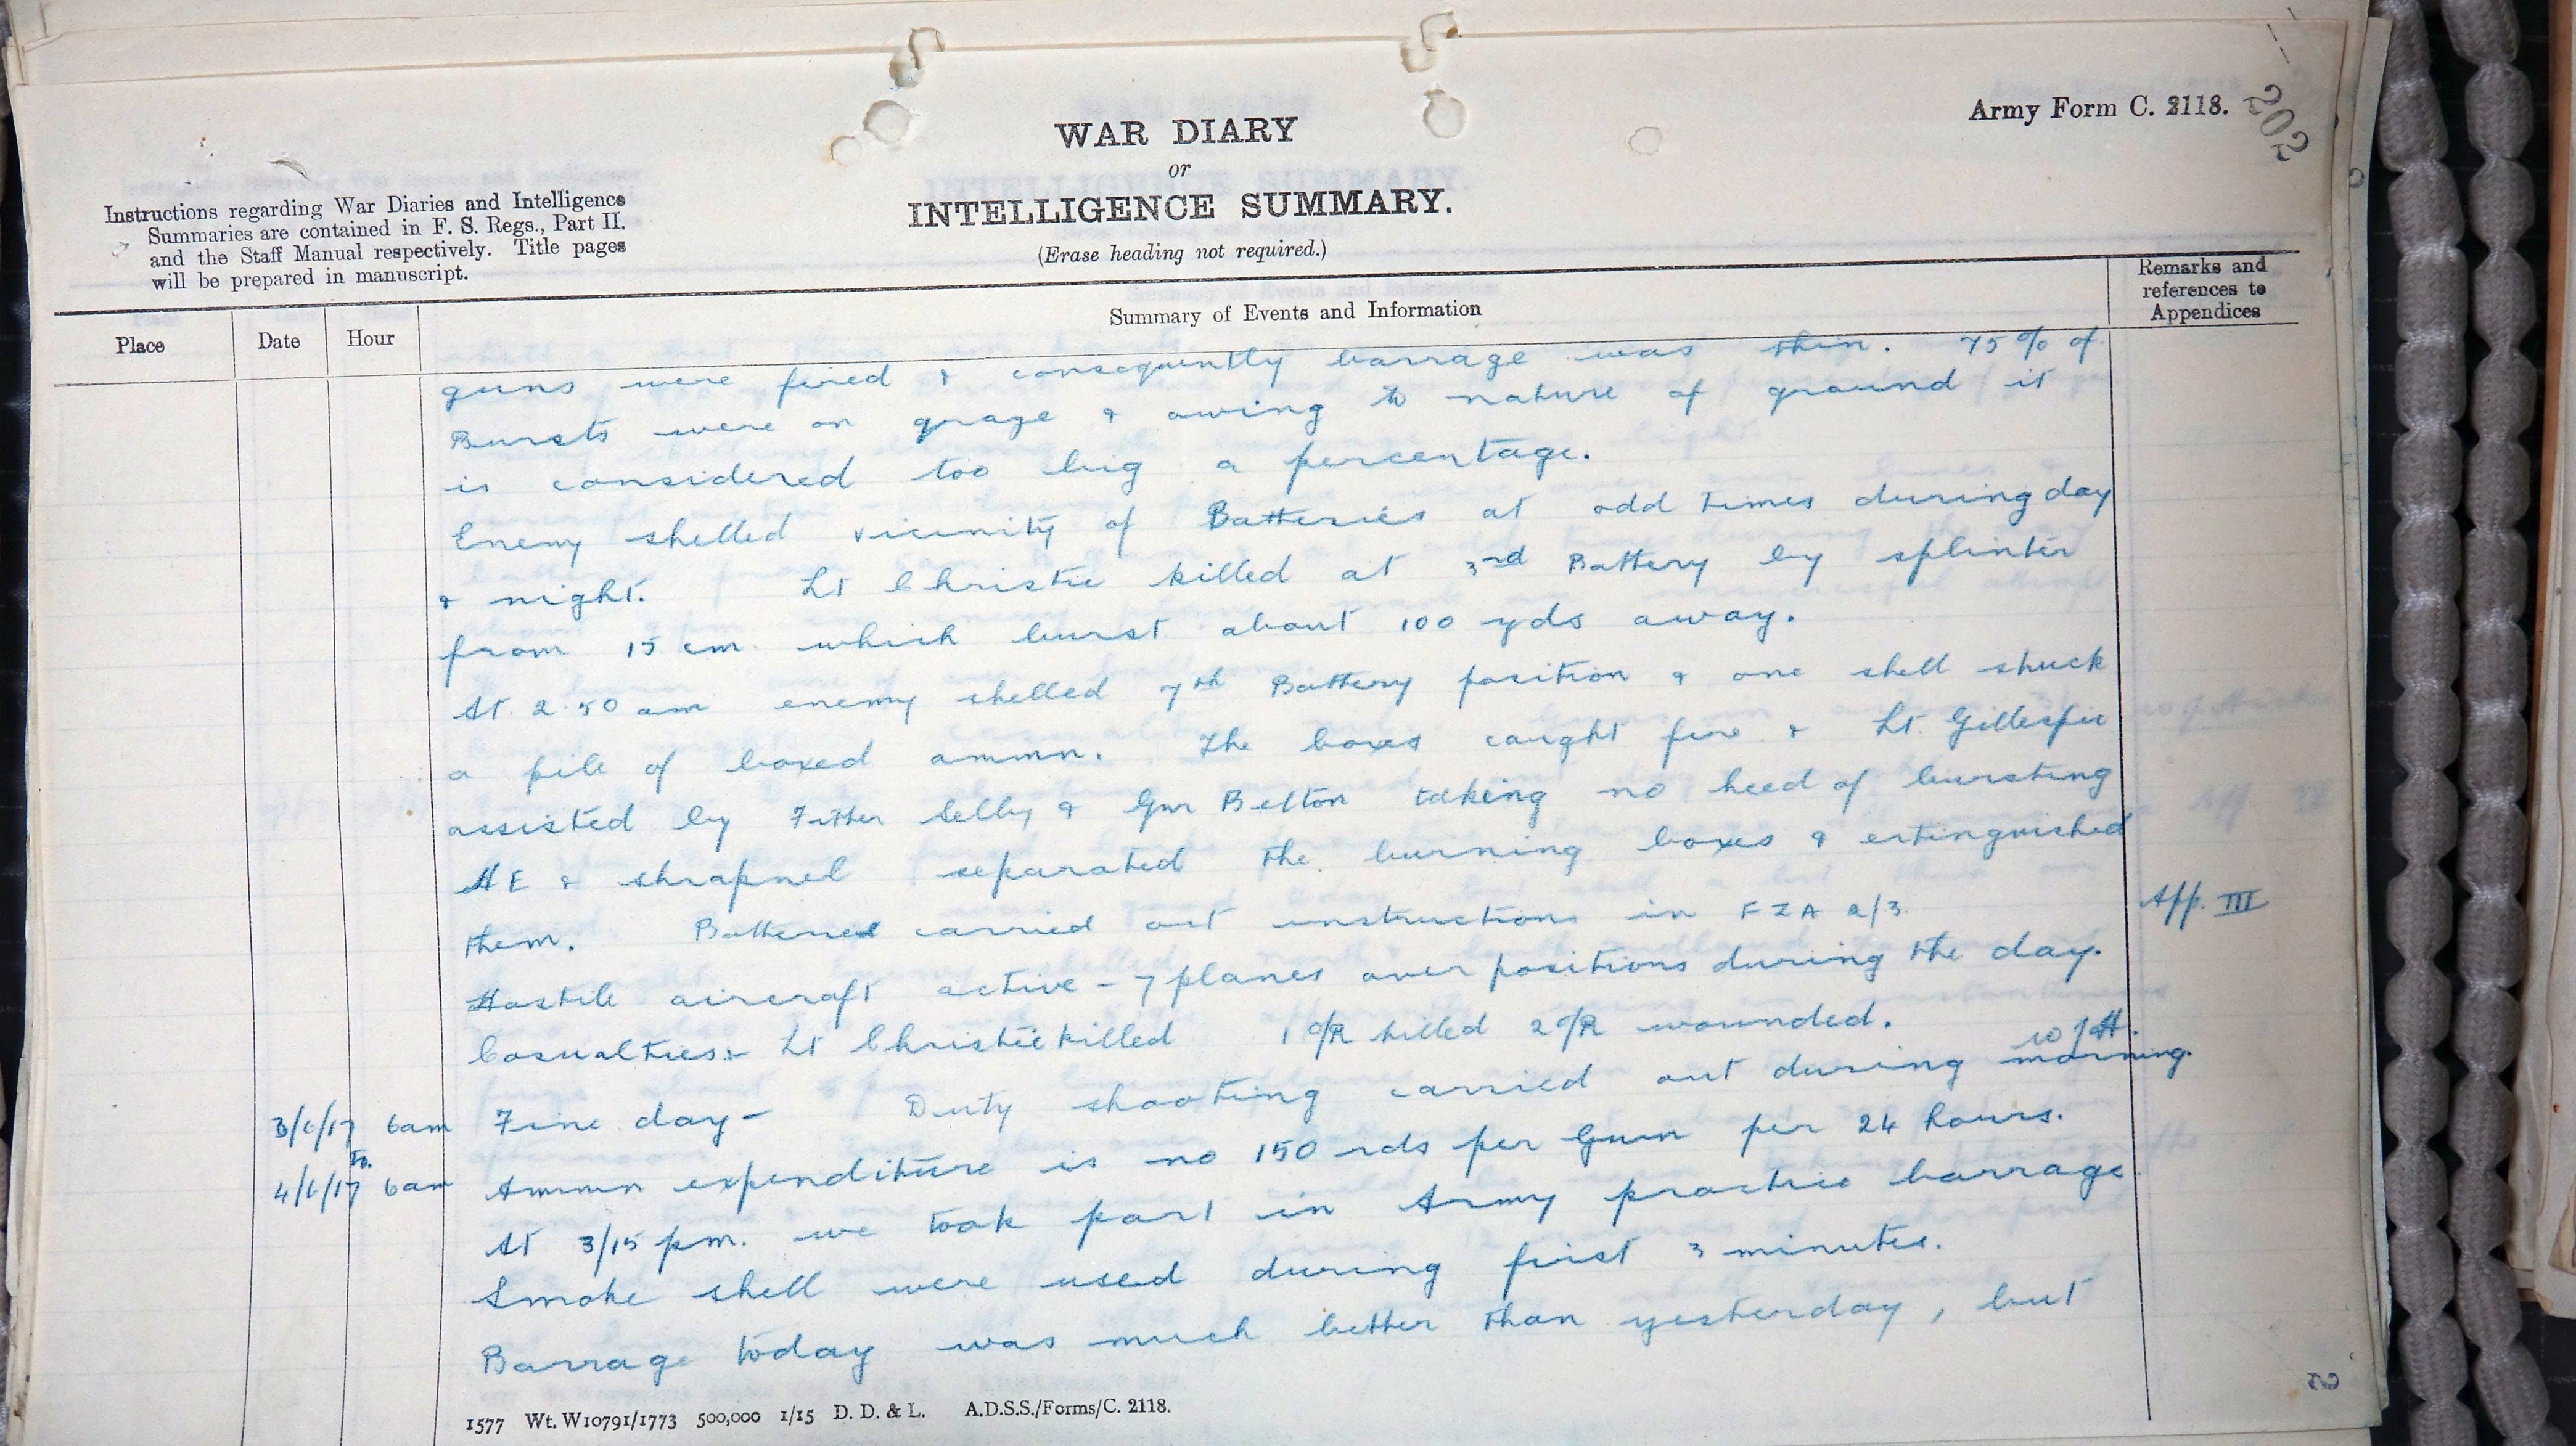 Army Form C. 2118.
202
WAR DIARY
or
INTELLIGENCE SUMMARY.
(Erase heading not required.)
Instructions regarding War Diaries and Intelligence
Summaries are contained in F. S. Regs., Part II.
and the Staff Manual respectively. Title pages
will be prepared in manuscript.
Place
Date
Hour
Summary of Events and Information
Remarks and
references to
Appendices
guns were fired & consequently barrage was thin. 75% of
Bursts were on graze & owing to nature of ground it
is considered too big a percentage.
Enemy shelled vicinity of Batteries at odd times during day
& night. Lt Christie killed at 3rd Battery by splinter
from 15 cm which burst about 100 yds away.
At 2.50 am enemy shelled 7th Battery position & one shell struck
a pile of boxed ammn. The boxes caught fire & Lt. Gillespie
assisted by Fitter Selby & Gnr Belton taking no heed of bursting
HE & shrapnel separated the burning boxes & extinguished
them. Batteries carried out instructions in FZA 2/3. App. III
Hostile aircraft active - 7 planes over positions during the day.
Casualties:- Lt Christie killed 1 O/R killed 2 O/R wounded.
3/6/17 6am Fine day - Duty shooting carried out during morning.
to.
4/6/17 6am Ammn expenditure is no 150 rds per Gun per 24 hours.
At 3/15 pm. we took part in Army practice barrage.
Smoke shell were used during first 3 minutes.
Barrage today was much better than yesterday, but
1577 Wt. W10791/1773 500,000 1/15 D. D. & L. A.D.S.S./Forms/C. 2118.
2